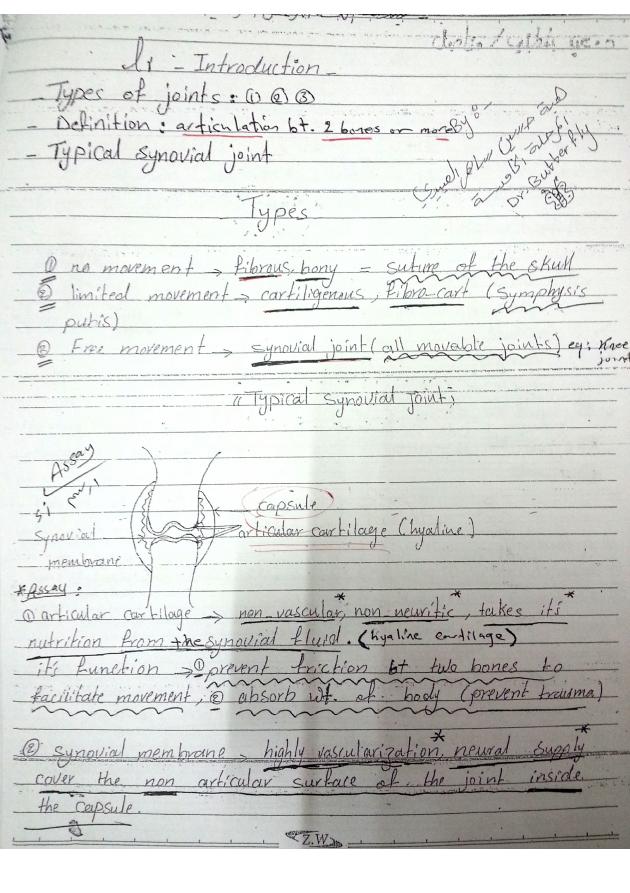 L1 - Introduction -
- Types of joints : ① ② ③
- Definition : articulation bt. 2 bones or more
By :-
- Typical synovial joint
Dr. Butterfly
Types
① no movement → fibrous, bony = suture of the skull
② limited movement → cartiligenous, fibro-cart (Symphysis
putis)
③ Free movement → synovial joint (all movable joints) eg: Knee
joint
"Typical synovial joint;
Assay
capsule
articular cartilage (hyaline)
Synovial
membrane
*Assay :
① articular cartilage → non vascular*, non neuritic*, takes it's*
nutrition from the synovial fluid. (hyaline cartilage)
it's function → ① prevent friction bt two bones to
facilitate movement, ② absorb wt. of body (prevent trauma)
② synovial membrane → highly vascularization*, neural supply*
cover the non articular surface of the joint inside
the capsule.
Z.W